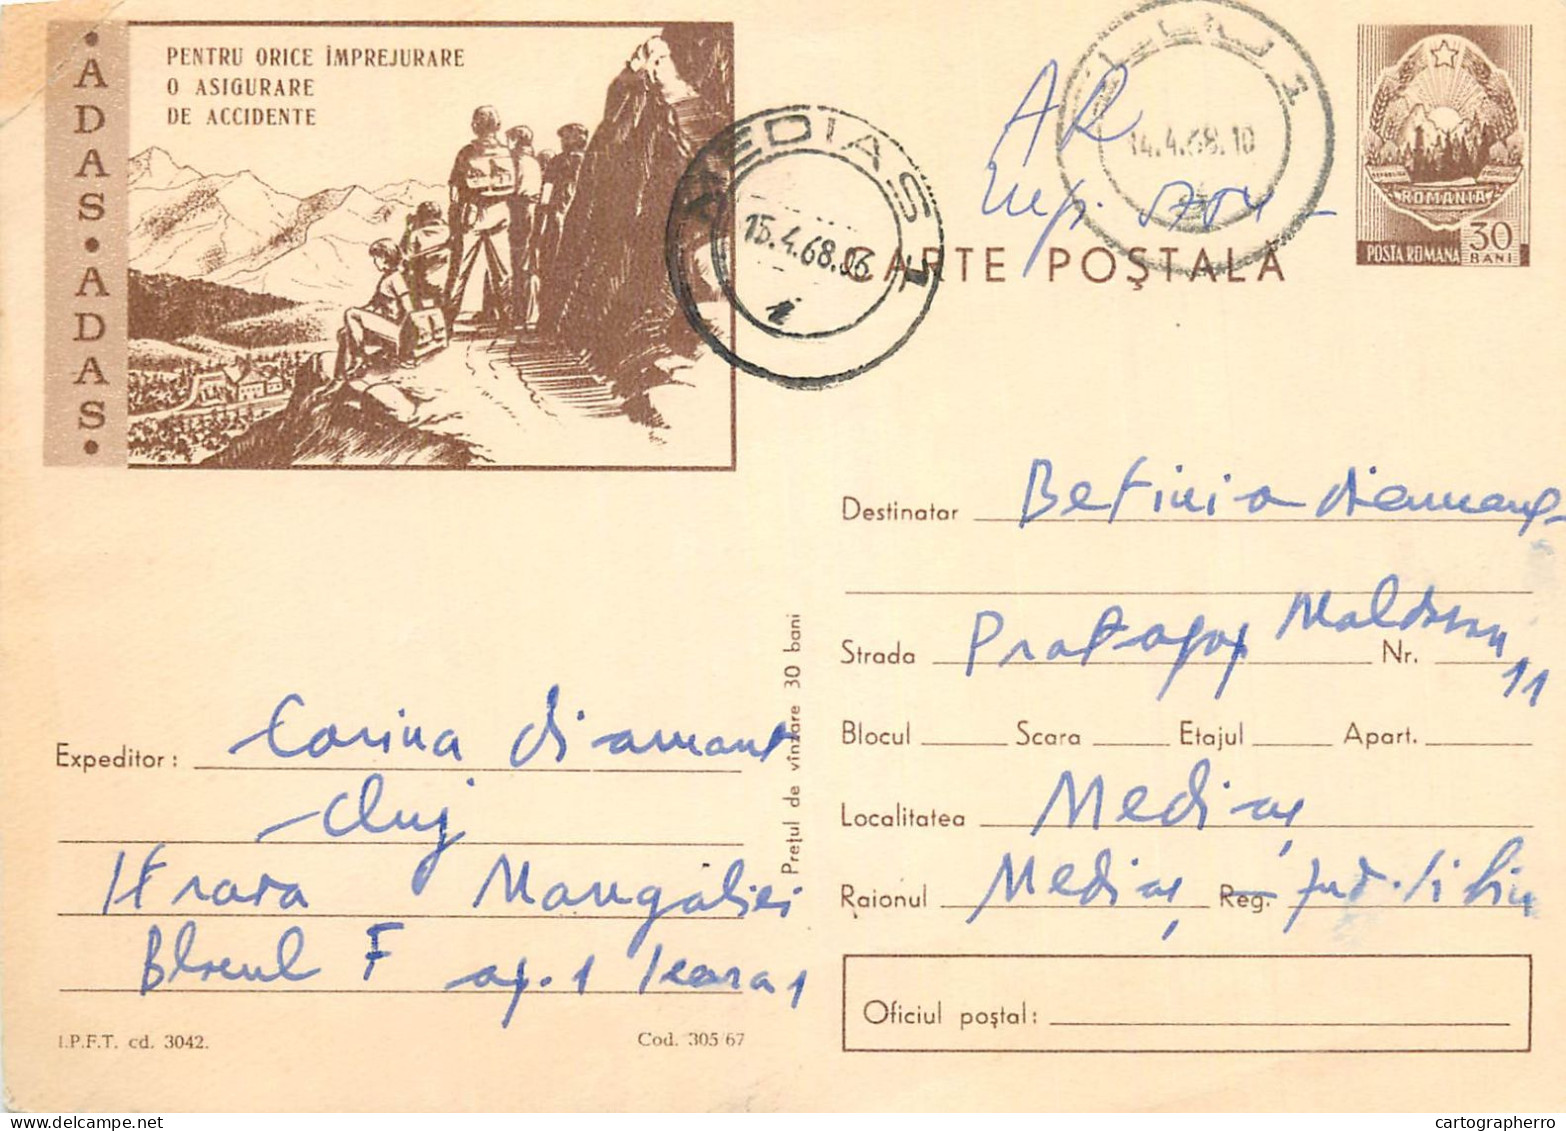 • ADAS • ADAS •
PENTRU ORICE ÎMPREJURARE
O ASIGURARE
DE ACCIDENTE
MEDIAS 1
15.4.68.06
CLUJ 1
14.4.68.10
AR
CARTE POȘTALĂ
ROMANIA
POSTA ROMANA
30
BANI
Destinatar Betinia diamant
Strada Protopop Moldovan Nr. 11
Blocul Scara Etajul Apart.
Localitatea Mediaș
Raionul Mediaș Reg. Jud. Sibiu
Oficiul poștal:
Prețul de vînzare 30 bani
Expeditor: Corina diamant
Cluj
Strada Mangaliei
Blocul F ap. 1 scara 1
I.P.F.T. cd. 3042.
Cod. 305/67
cartographerro